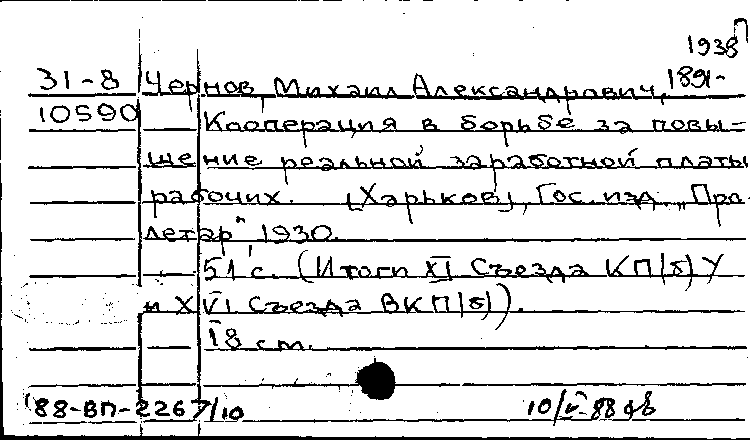 1938
31-8 Чернов, Михаил Александрович, 1891-
10590 Кооперация в борьбе за повы=
шение реальной заработной платы
рабочих. [Харьков], Гос. изд. "Про-
летар", 1930.
51 с. (Итоги XI Съезда КП(б)У
и XVI Съезда ВКП(б)).
18 см.
88-ВП-2267/10 10/V-88